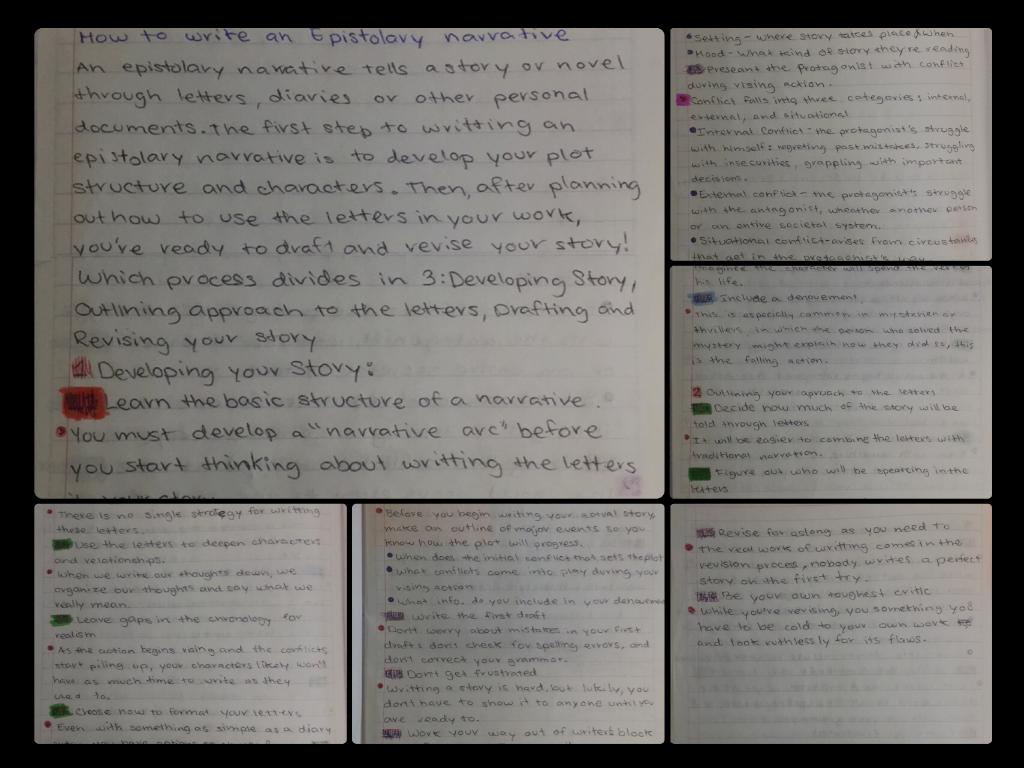 How to write an Epistolary narrative
An epistolary narrative tells a story or novel
through letters, diaries or other personal
documents. The first step to writting an
epistolary narrative is to develop your plot
structure and characters. Then, after planning
out how to use the letters in your work,
you're ready to draft and revise your story!
Which process divides in 3: Developing Story,
Outlining approach to the letters, Drafting and
Revising your story
Developing your Story:
Learn the basic structure of a narrative.
You must develop a "narrative arc" before
you start thinking about writting the letters
Setting - where story takes place & when
Mood - what kind of story they're reading
Preseant the protagonist with conflict
during rising action.
Conflict falls into three categories: internal,
external, and situational
Internal Conflict - the protagonist's struggle
with himself: regreting past mistakes, struggling
with insecurities, grappling with important
decisions.
External conflict - the protagonist's struggle
with the antagonist, wheather another person
or an entire societal system.
Situational conflict-arises from circustances
that get in the protagonist's way
imaginee the character will spend the rest of
his life.
Include a denouement,
This is especially common in mysteries or
thrillers, in which the person who solved the
mystery might explain how they did so, this
is the falling action.
2 Outlining your aproach to the letters
Decide how much of the story will be
told through letters
It will be easier to combine the letters with
traditional narration.
Figure out who will be speacing in the
letters
There is no single strategy for writting
these letters.
Use the letters to deepen characters
and relationships.
When we write our thoughts down, we
organize our thoughts and say what we
really mean.
Leave gaps in the chronology for
realism
As the action begins rising and the conflicts
start piling up, your characters likely won't
have as much time to write as they
used to.
Chose how to format your letters
Even with something as simple as a diary
Before you begin writing your actual story,
make an outline of major events so you
know how the plot will progress.
When does the initial conflict that sets the plot
What conflicts come into play during your
rising action
What info. do you include in your denouement
Write the first draft
Don't worry about mistakes in your first
drafts don't check for spelling errors, and
don't correct your grammar.
Don't get frustrated
Writting a story is hard, but lukily, you
don't have to show it to anyone until you
are ready to.
Work your way out of writers block
Revise for aslong as you need to
The real work of writting comes in the
revision process, nobody writes a perfect
story on the first try.
Be your own toughest critic
While you're revising, you something you
have to be cold to your own work
and look ruthlessly for its flaws.